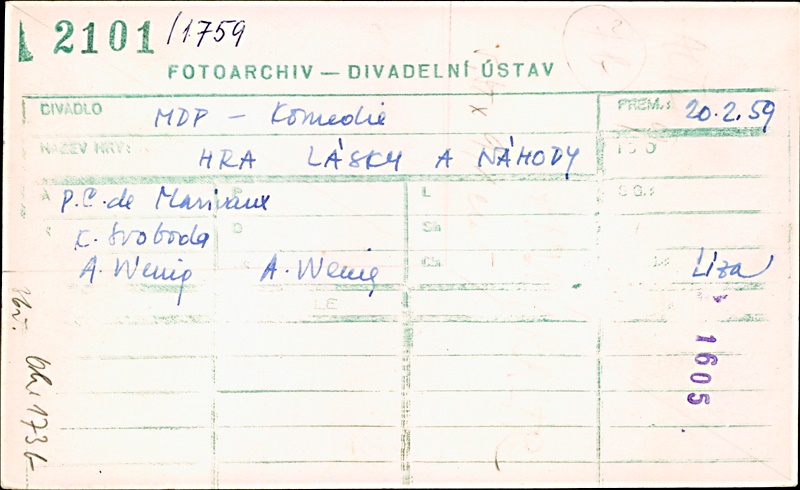 2101 /1759
FOTOARCHIV — DIVADELNÍ ÚSTAV
DIVADLO MDP – Komedie PREM.: 20.2.59
NÁZEV HRY: HRA LÁSKY A NÁHODY
A P.C. de Marivaux L SG.:
K. Svoboda D
A. Wenig A. Wenig Líza
LE
1605